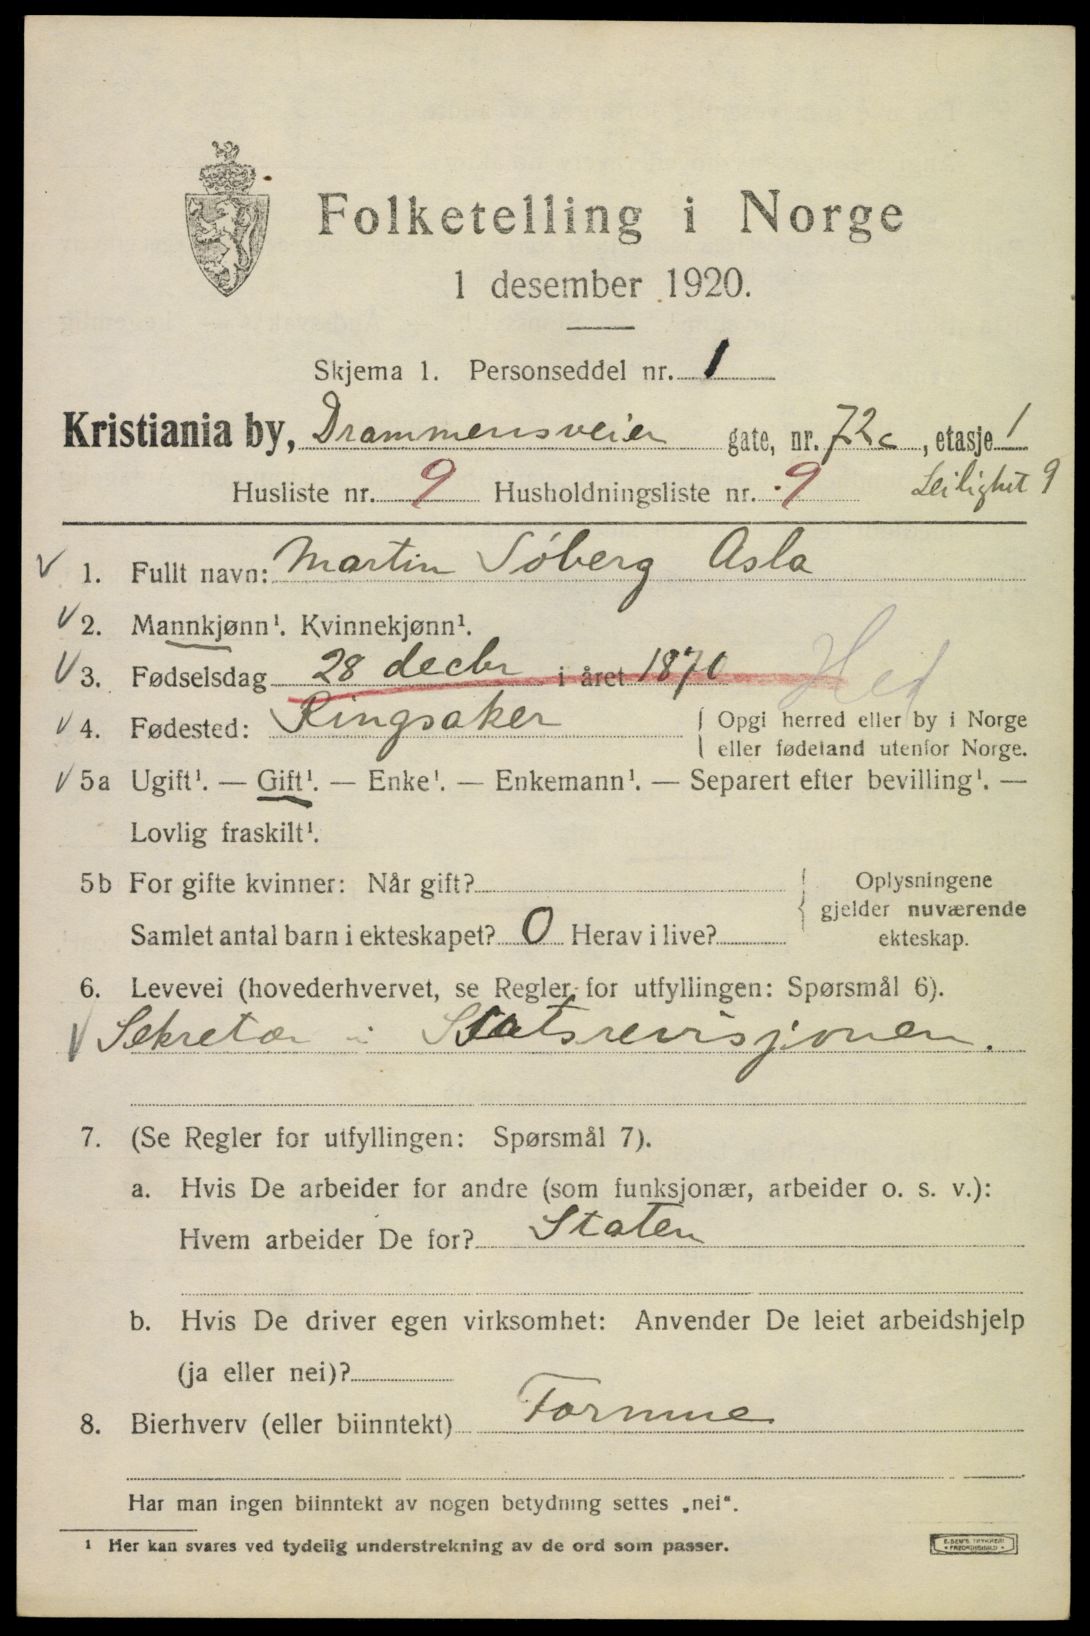 Folketelling i Norge
1 desember 1920.
Skjema 1. Personseddel nr. 1
Kristiania by, Drammensveien gate, nr. 72c, etasje 1
Husliste nr. 9 Husholdningsliste nr. 9 Leilighet 9
1. Fullt navn: Martin Söberg Asla
2. Mannkjønn¹. Kvinnekjønn¹.
3. Fødselsdag 28 decbr i året 1870 Hed
4. Fødested: Ringsaker { Opgi herred eller by i Norge
eller fødeland utenfor Norge.
5a Ugift¹. — Gift¹. — Enke¹. — Enkemann¹. — Separert efter bevilling¹. —
Lovlig fraskilt¹.
5b For gifte kvinner: Når gift? { Oplysningene
gjelder nuværende
Samlet antal barn i ekteskapet? 0 Herav i live? ekteskap.
6. Levevei (hovederhvervet, se Regler for utfyllingen: Spørsmål 6).
Sekretær i Statsrevisjonen.
7. (Se Regler for utfyllingen: Spørsmål 7).
a. Hvis De arbeider for andre (som funksjonær, arbeider o. s. v.):
Hvem arbeider De for? Staten
b. Hvis De driver egen virksomhet: Anvender De leiet arbeidshjelp
(ja eller nei)?
8. Bierhverv (eller biinntekt) Formue
Har man ingen biinntekt av nogen betydning settes „nei“.
¹ Her kan svares ved tydelig understrekning av de ord som passer.